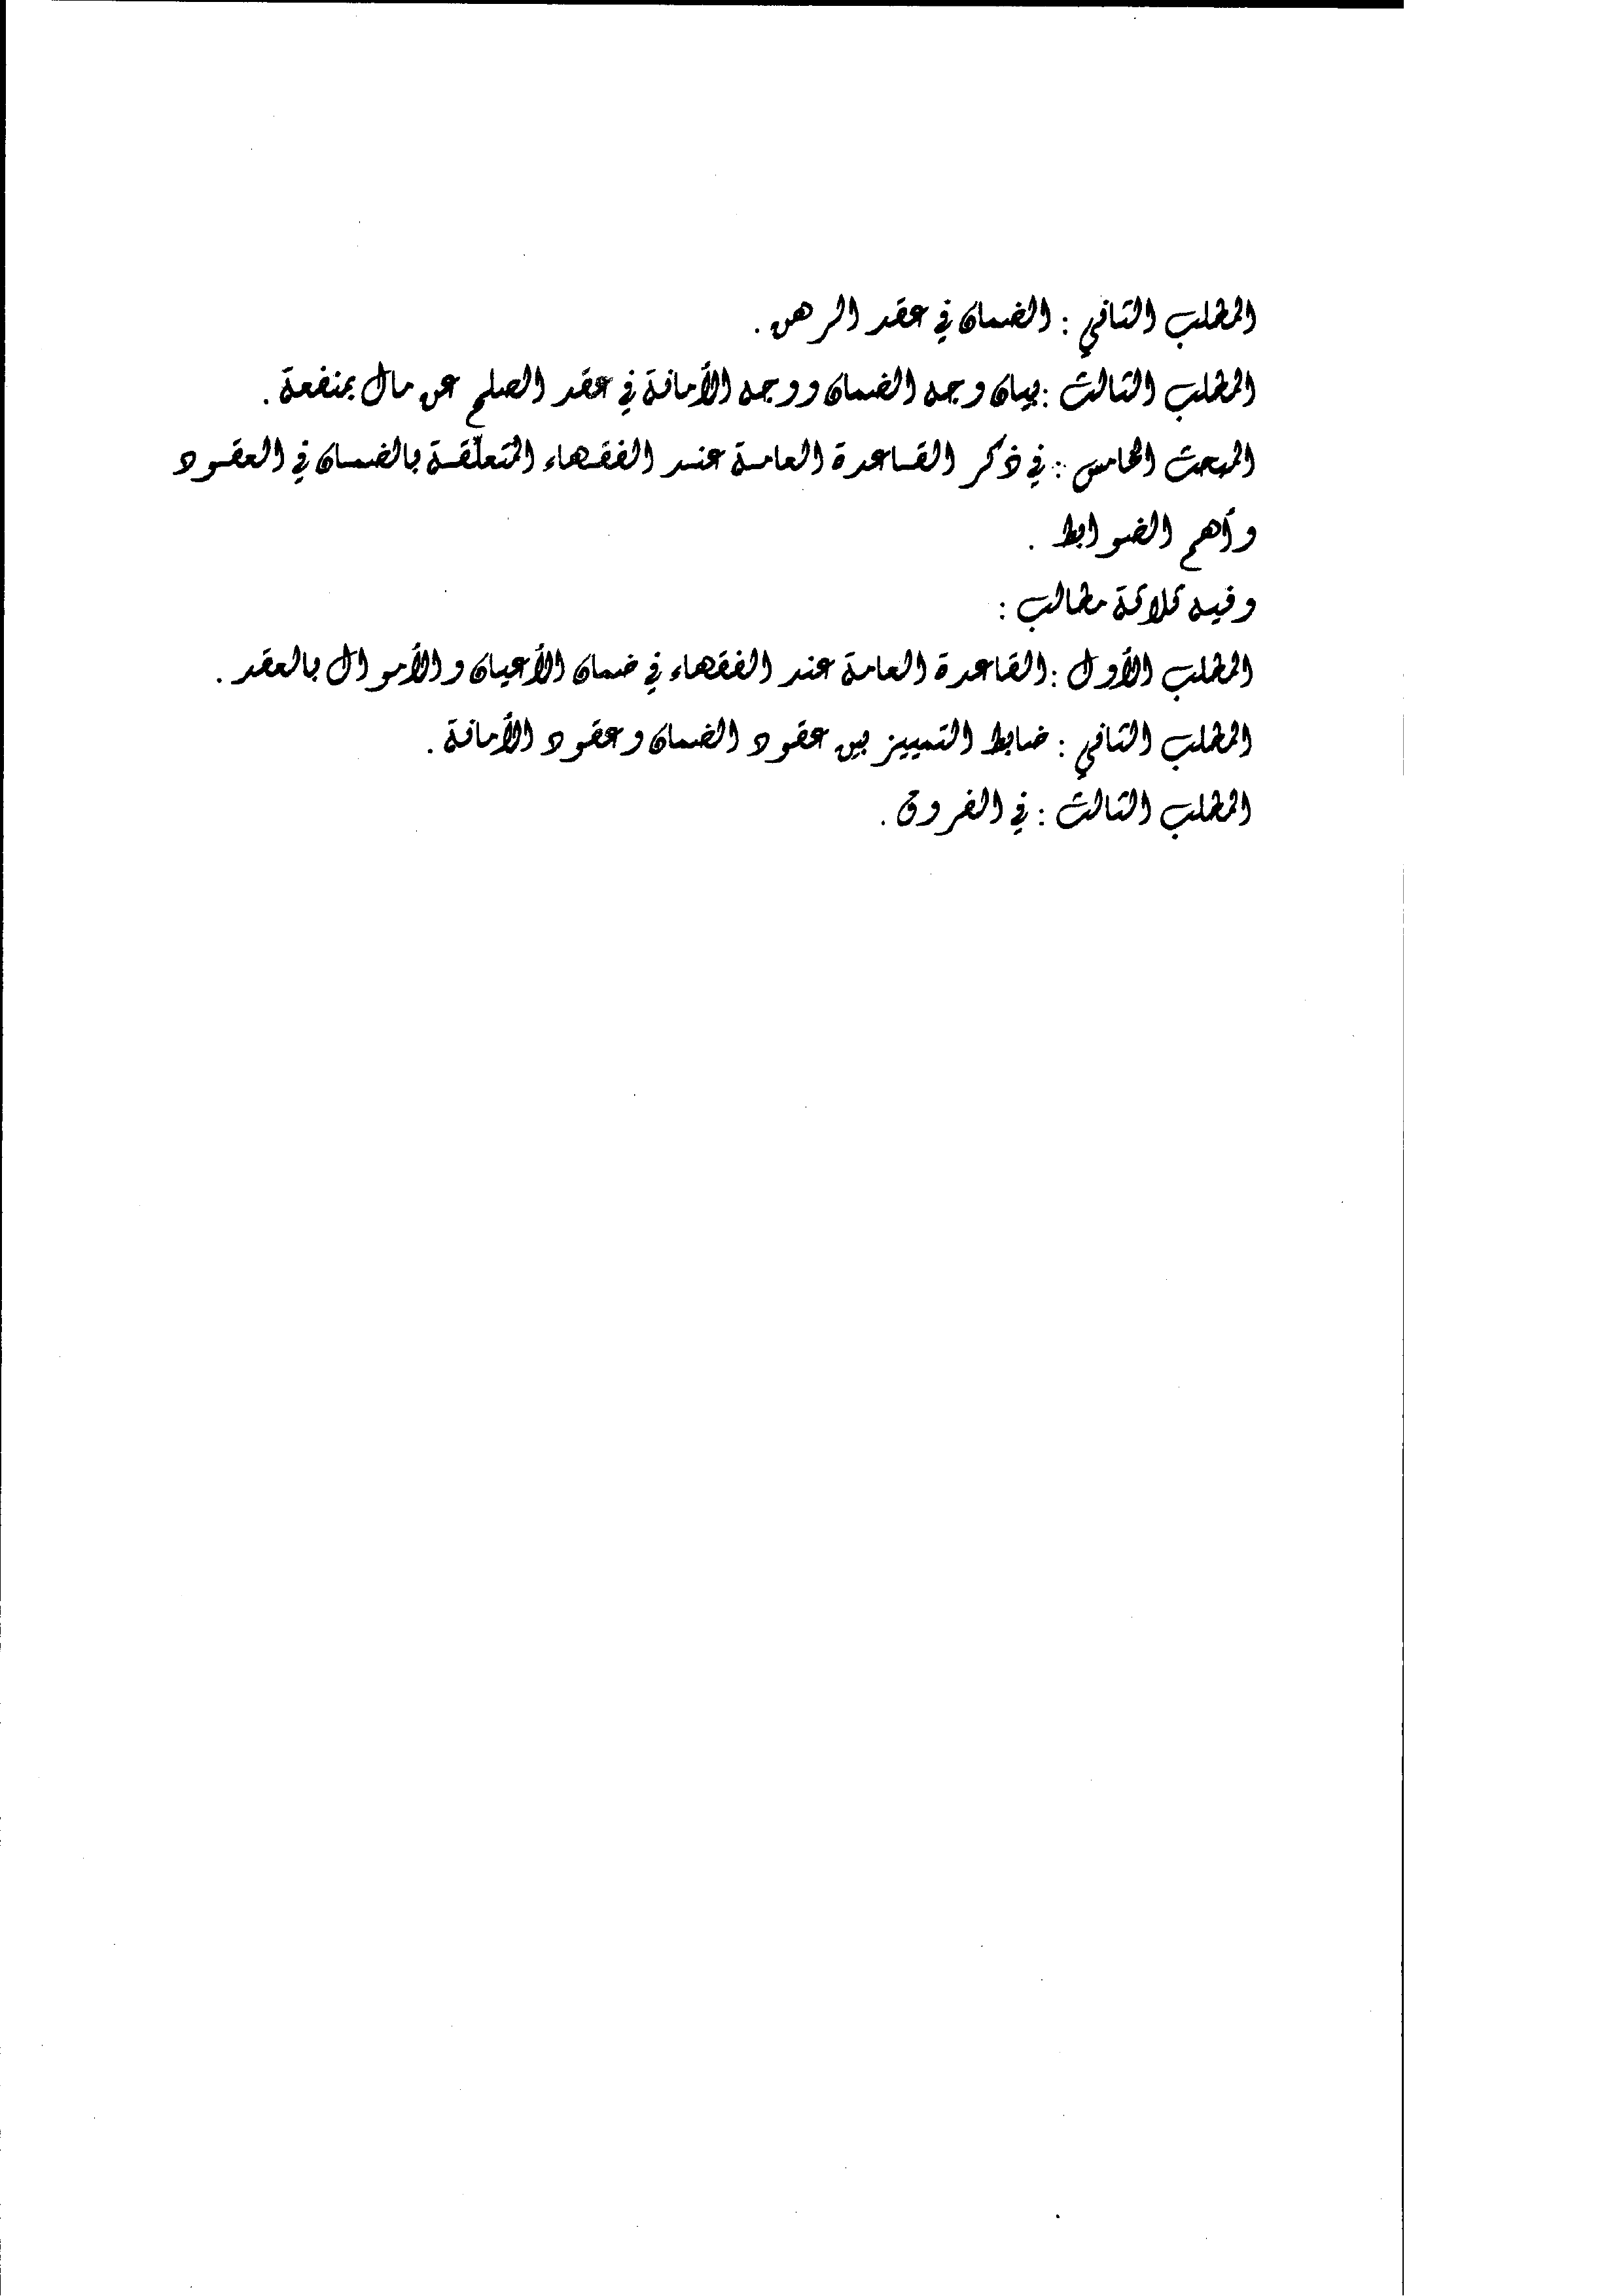 المطلب الثاني : الضمان في عقد الرهن .
المطلب الثالث : بيان وجه الضمان ووجه الأمانة في عقد الصلح عن مال بمنفعة .
المبحث الخامس : في ذكر القاعدة العامة عند الفقهاء المتعلّقة بالضمان في العقود
وأهم الضوابط .
وفيه ثلاثة مطالب :
المطلب الأول : القاعدة العامة عند الفقهاء في ضمان الأعيان والأموال بالعقد .
المطلب الثاني : ضابط التمييز بين عقود الضمان وعقود الأمانة .
المطلب الثالث : في الفروق .